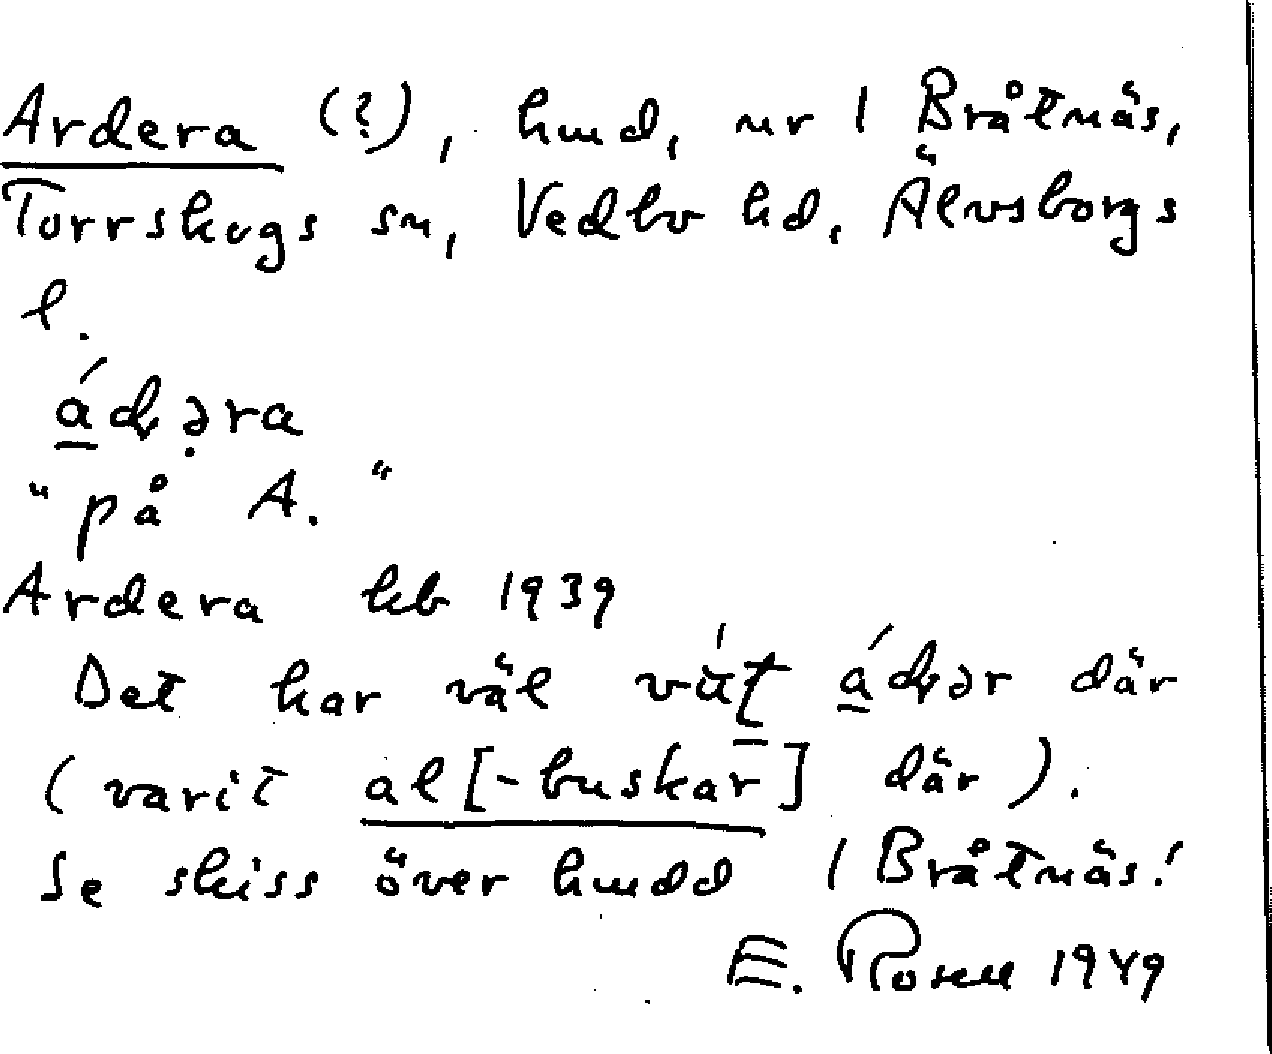 Ardera (?), hmd, nr 1 Bråtnäs,
Torrskogs sn, Vedbo hd, Älvsborgs
l.
áɖəra
"på A."
Ardera kb 1939
Det har väl vàṭ áɖər där
(varit al[-buskar] där).
Se skiss över hmdd 1 Bråtnäs!
E. Rosell 1949